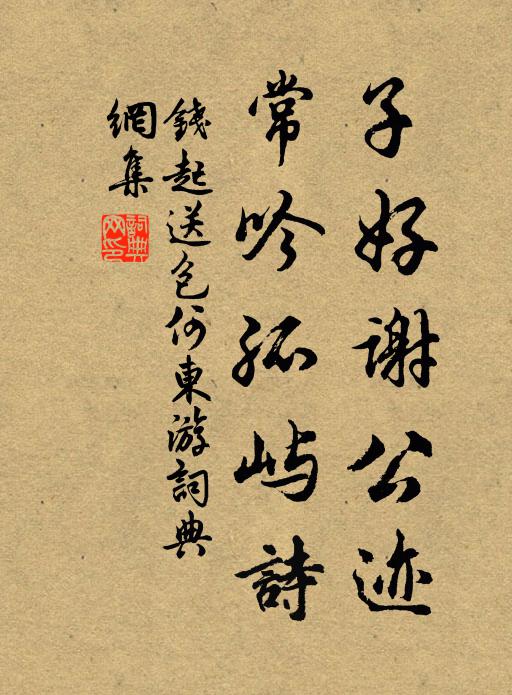 子好謝公迹
常吟孤屿詩
錢起送包何東游詞典
網集
詞典網印